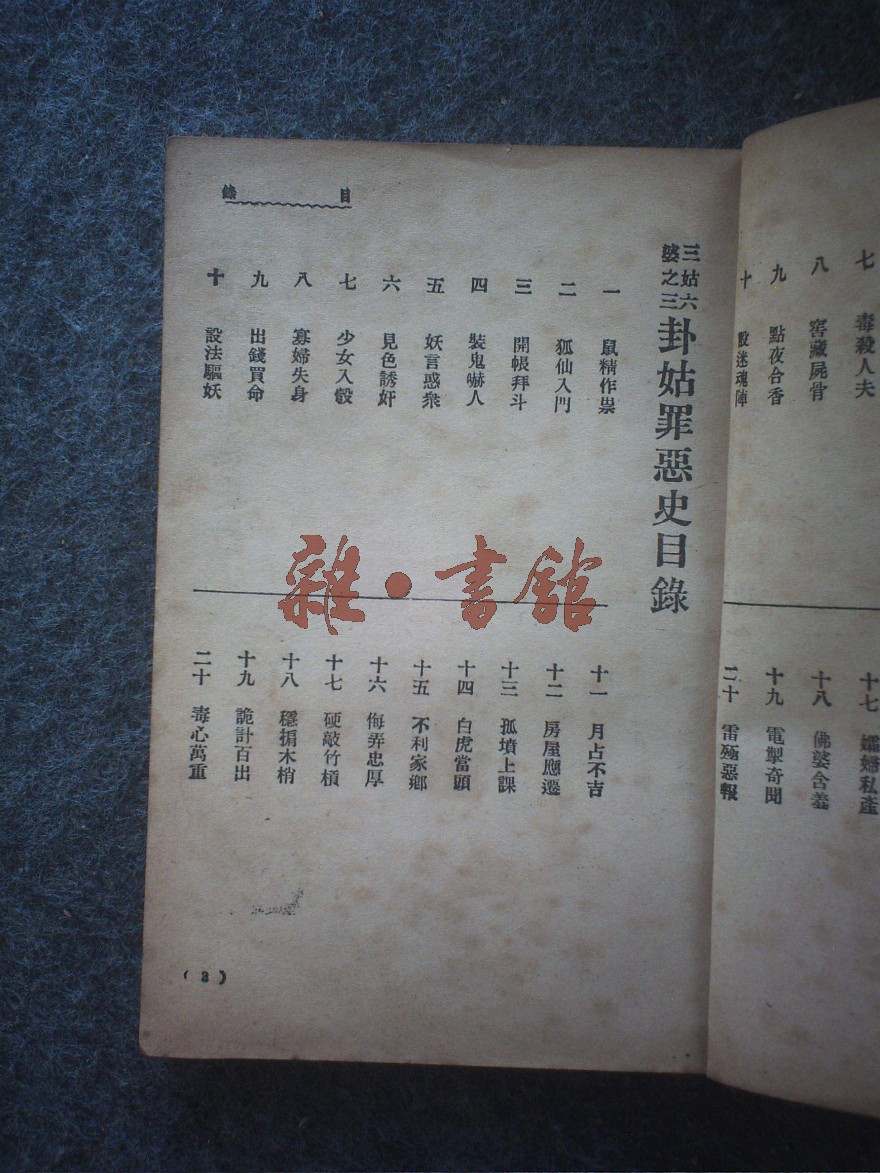 七 毒殺人夫
八 窖藏屍骨
九 點夜合香
十 設迷魂陣
十七 孀婦私產
十八 佛婆含羞
十九 電掣奇聞
二十 雷殛惡報
三姑六婆之三
卦姑罪惡史目錄
一 鼠精作祟
二 狐仙入門
三 開帳拜斗
四 裝鬼嚇人
五 妖言惑衆
六 見色誘奸
七 少女入彀
八 寡婦失身
九 出錢買命
十 設法驅妖
十一 月占不吉
十二 房屋應遷
十三 孤墳上課
十四 白虎當頭
十五 不利家鄉
十六 侮弄忠厚
十七 硬敲竹槓
十八 穩掮木梢
十九 詭計百出
二十 毒心萬重
目錄
(3)
雜·書館